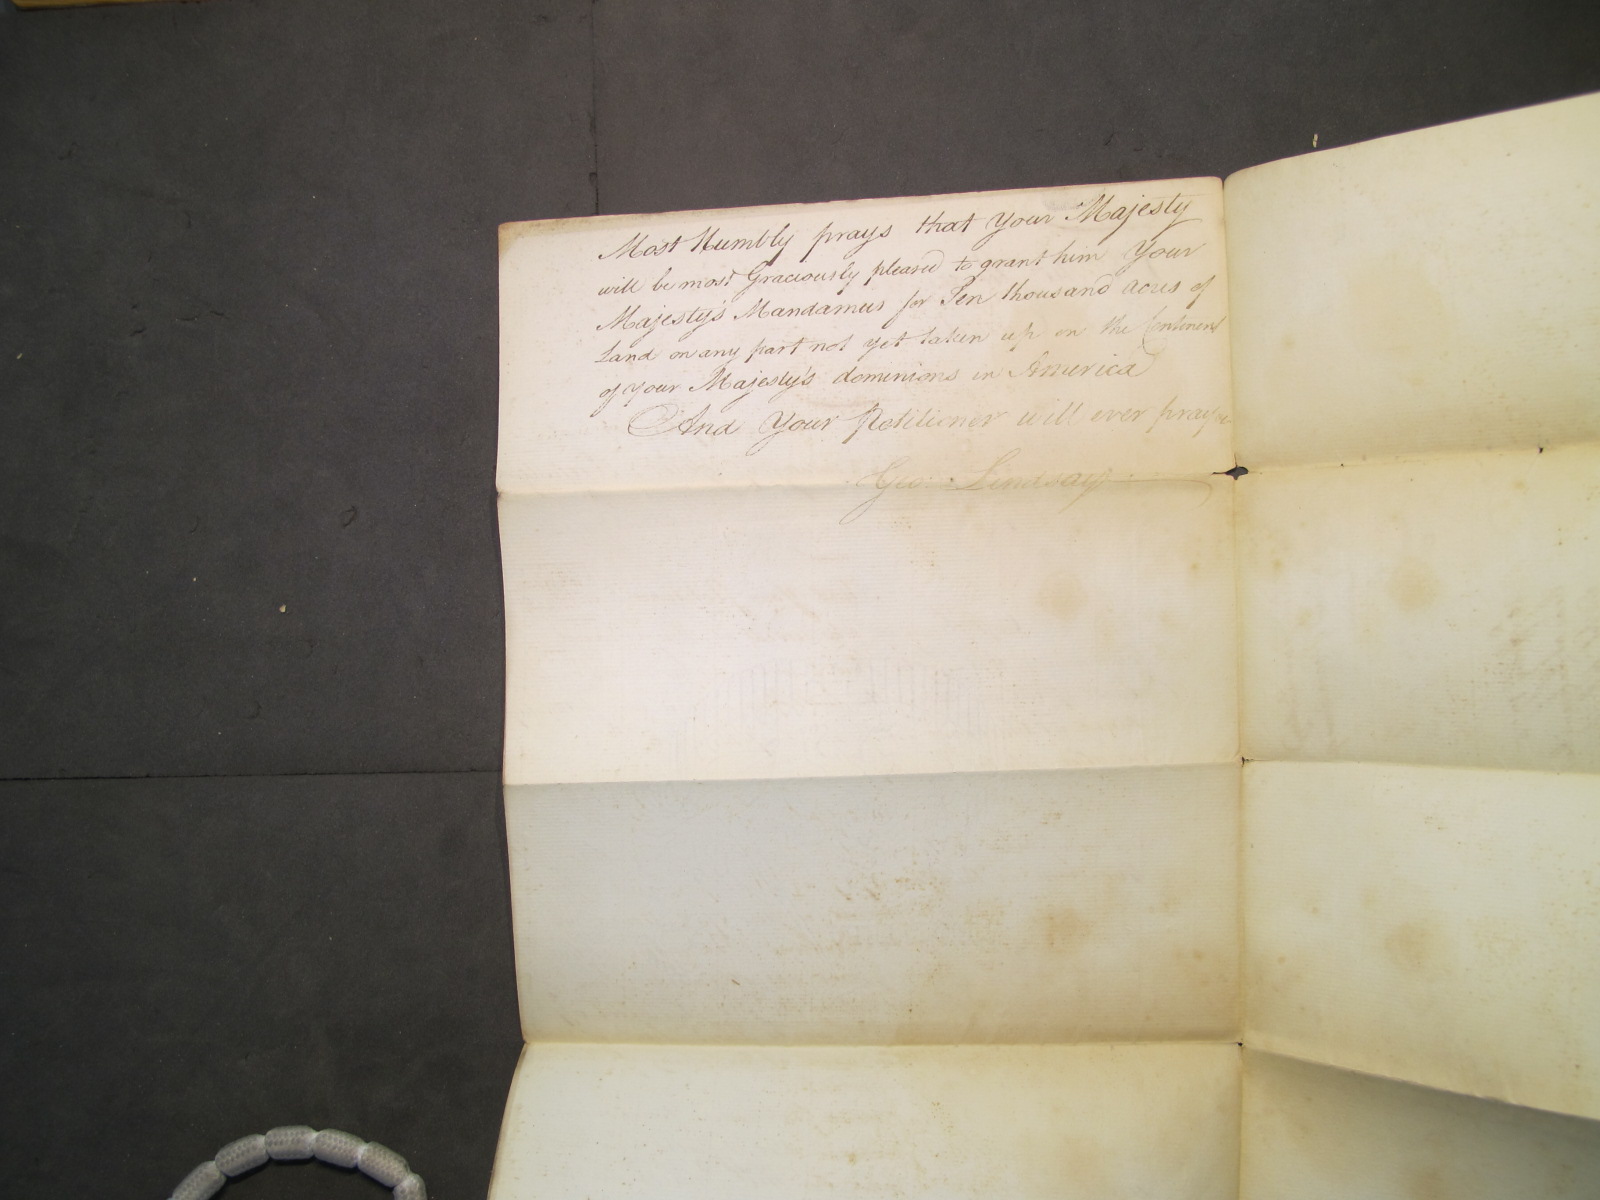 Most Humbly prays that Your Majesty
will be most Graciously pleased to grant him Your
Majesty's Mandamus for Ten thousand Acres of
Land on any part not yet taken up on the Continent
of your Majesty's dominions in America
And Your Petitioner will ever pray &c
Geo: Lindsay